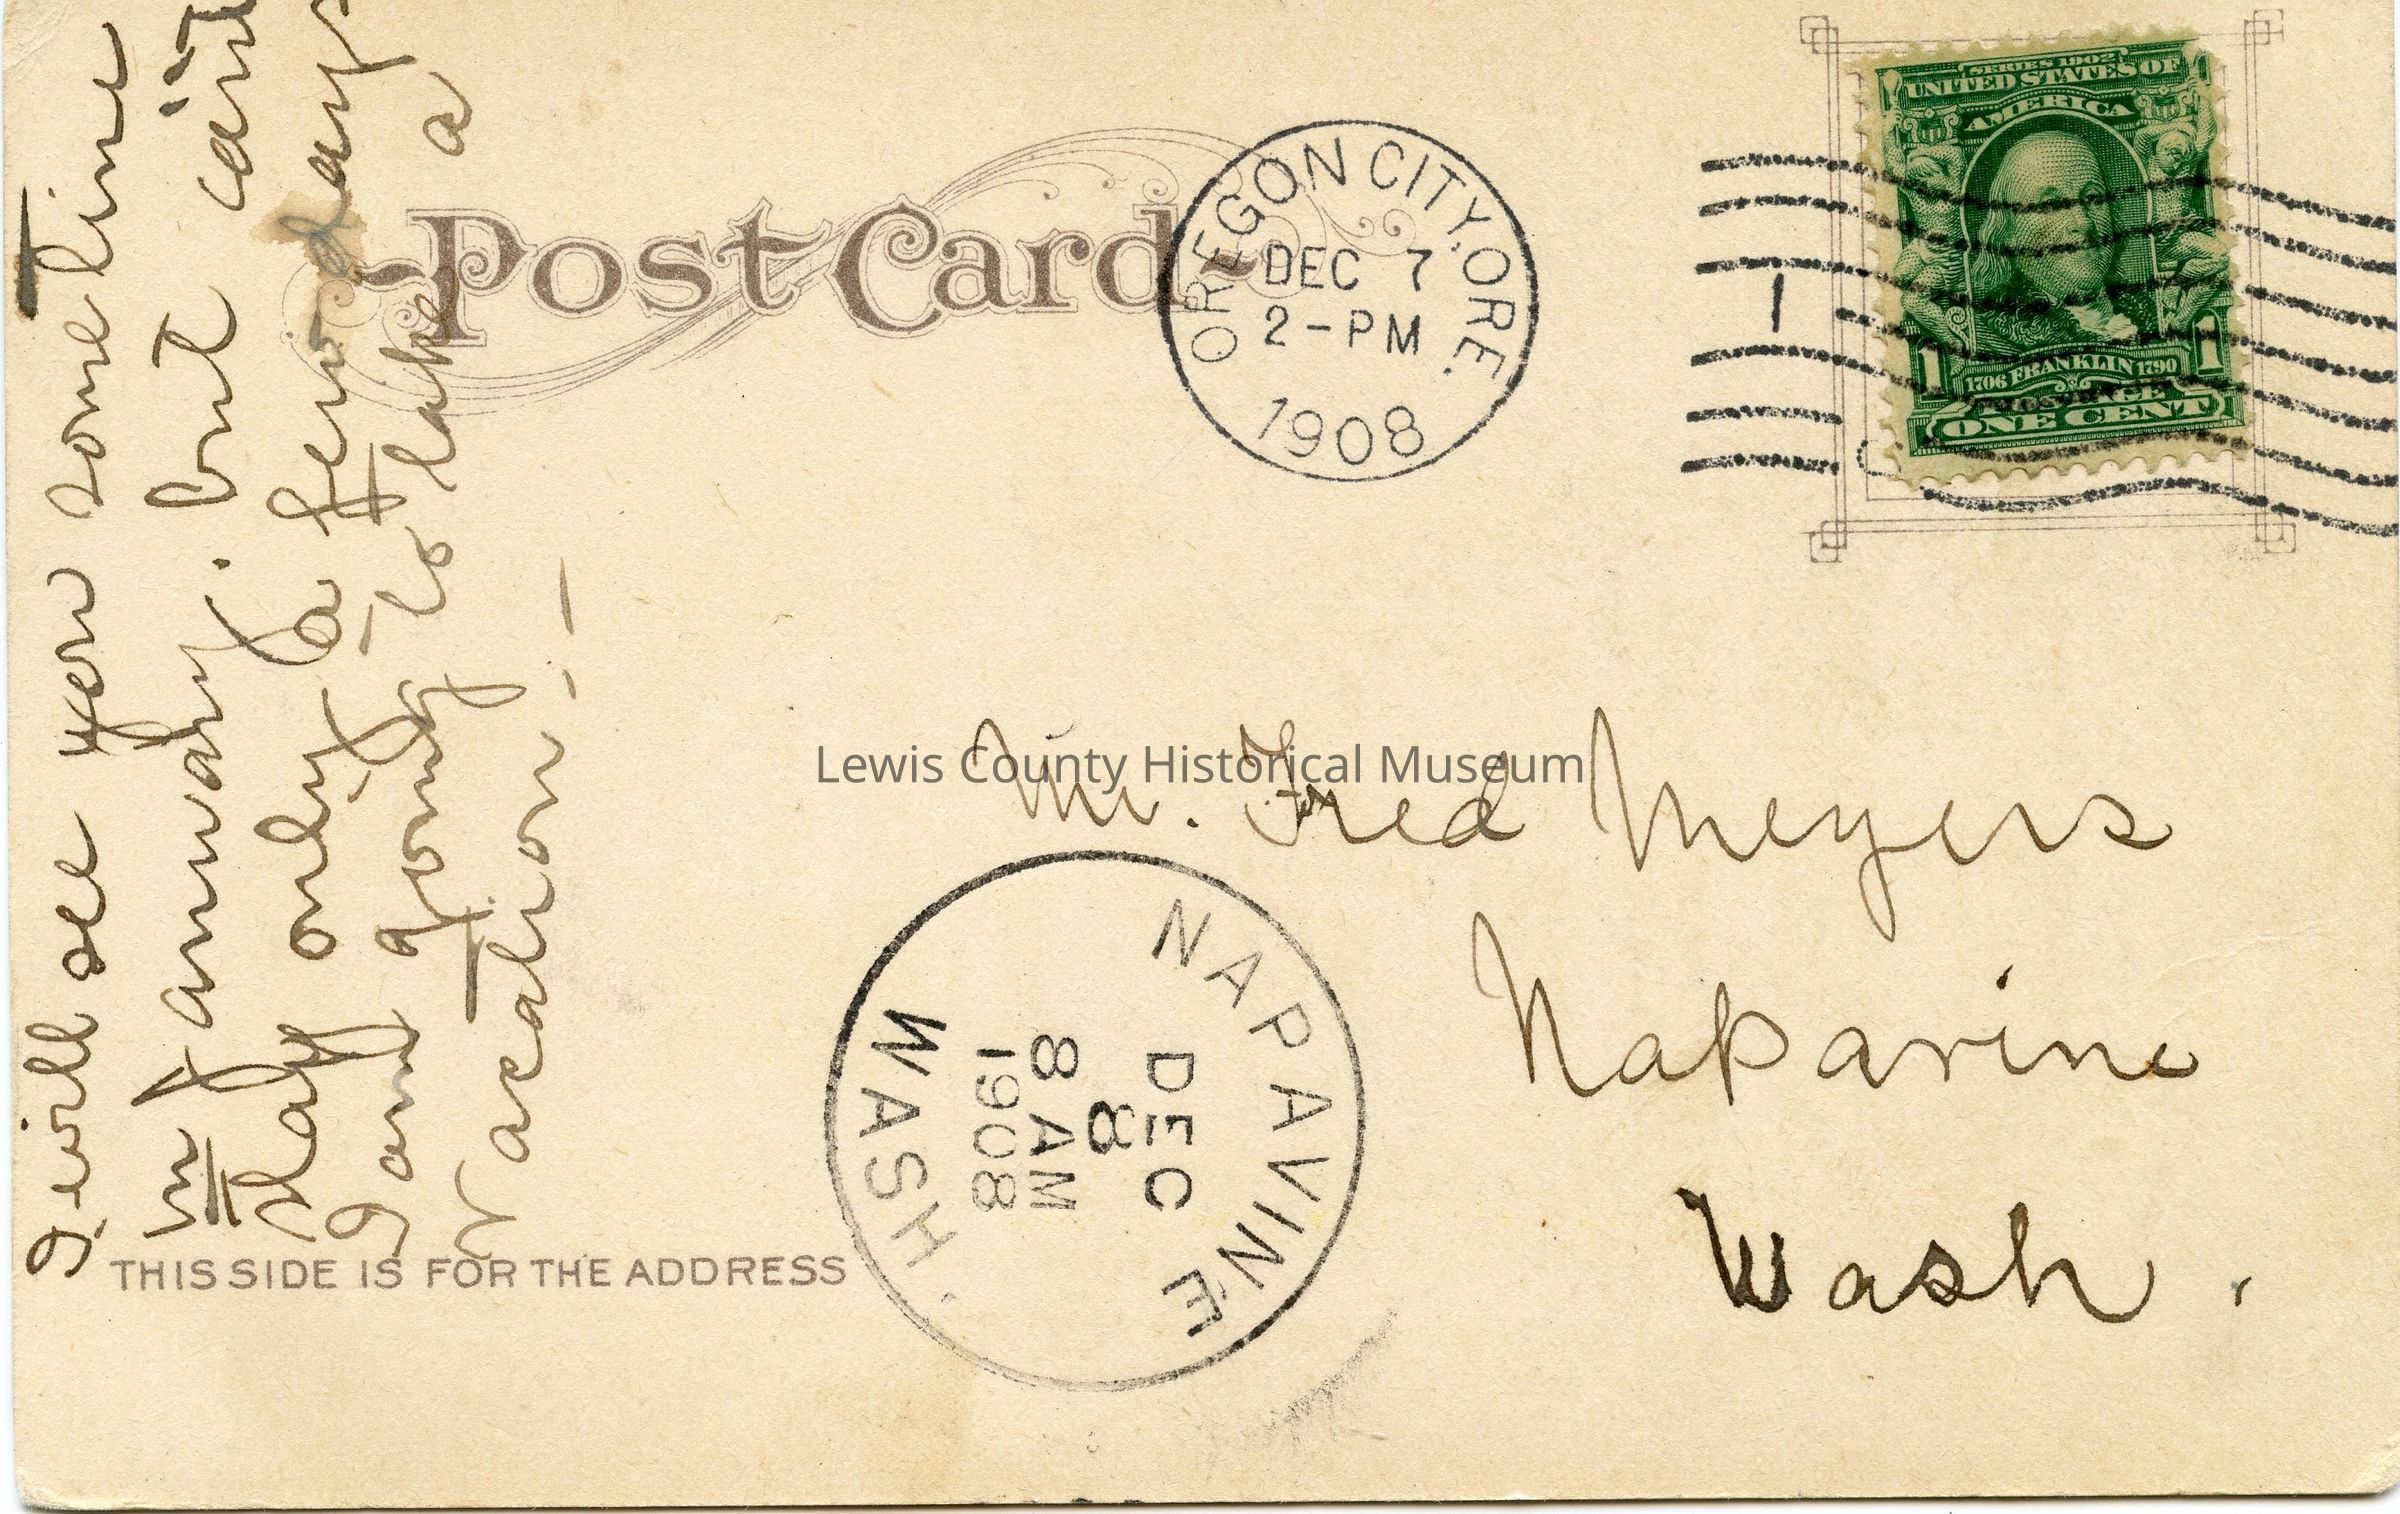 SERIES 1902
UNITED STATES OF
AMERICA
1706 FRANKLIN 1790
POSTAGE
1 1
ONE CENT
Post Card
OREGON CITY, ORE.
DEC 7
2-PM
1908
1
I will see you sometime
in January. but can't
stay only a few days
I am going to take a
vacation. —
Lewis County Historical Museum
Mr. Fred Meyers
Napavine
Wash.
NAPAVINE
DEC
8
8 AM
1908
WASH.
THIS SIDE IS FOR THE ADDRESS